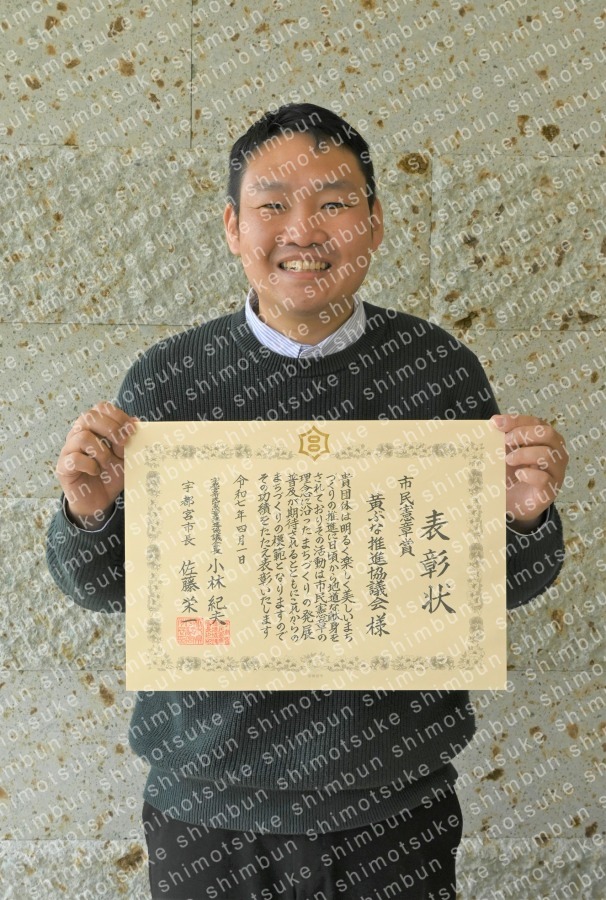 表彰状
市民憲章賞
黄ぶな推進協議会 様
貴団体は明るく楽しく美しいまち
づくりの推進に日頃から地道な献身を
されておりその活動は市民憲章の
理念に沿ったまちづくりの発展
普及が期待されるとともにこれからの
まちづくりの模範となりますので
その功績をたたえ表彰いたします
令和七年四月一日
小林 紀夫
宇都宮市長 佐藤 栄一
shimotsuke shimbun